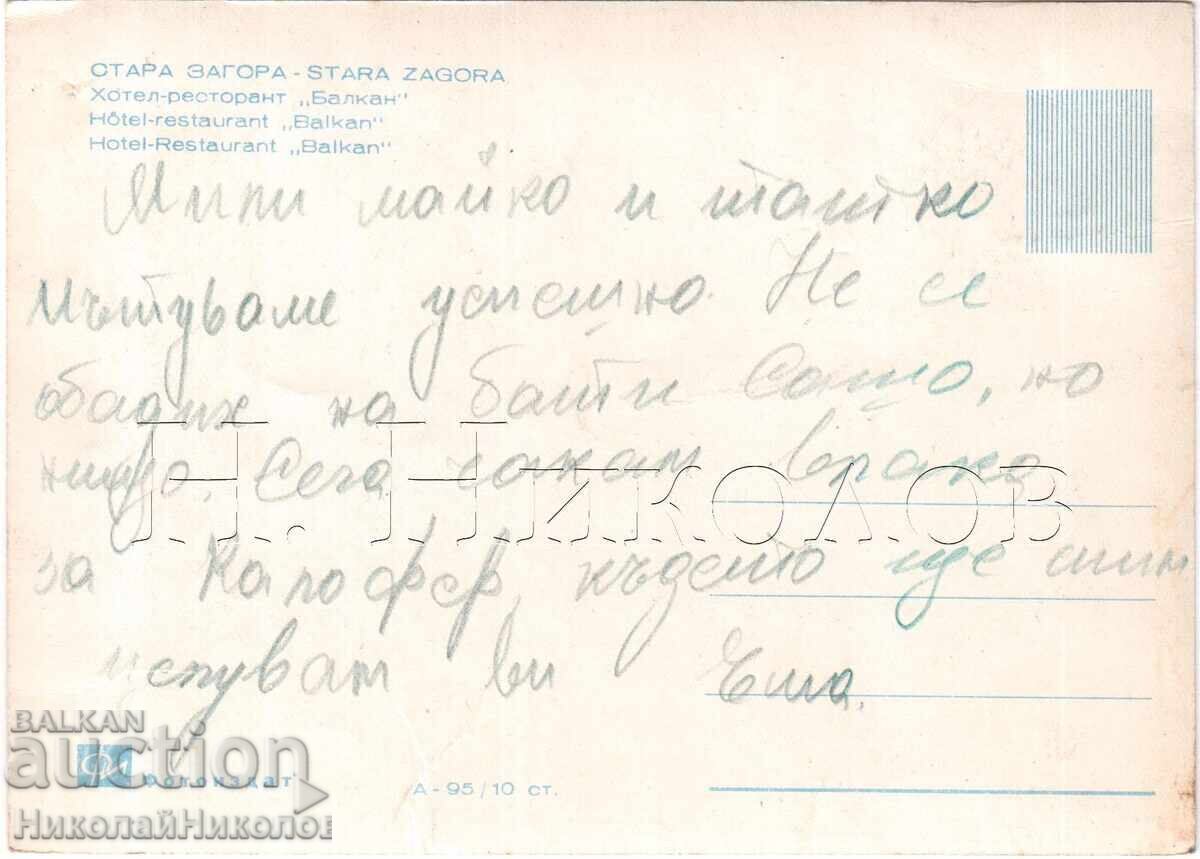 СТАРА ЗАГОРА - STARA ZAGORA
Хотел-ресторант „Балкан"
Hôtel-restaurant „Balkan"
Hotel-Restaurant „Balkan"
Мили майко и татко
Пътуваме успешно. Не се
обадих на бати Сашо, но
нищо. Сега чакам влака
за Калофер, където ще
целувам ви
Н. Николов
BALKAN
auction
Фотоиздат
А-95/10 ст.
НиколайНиколов